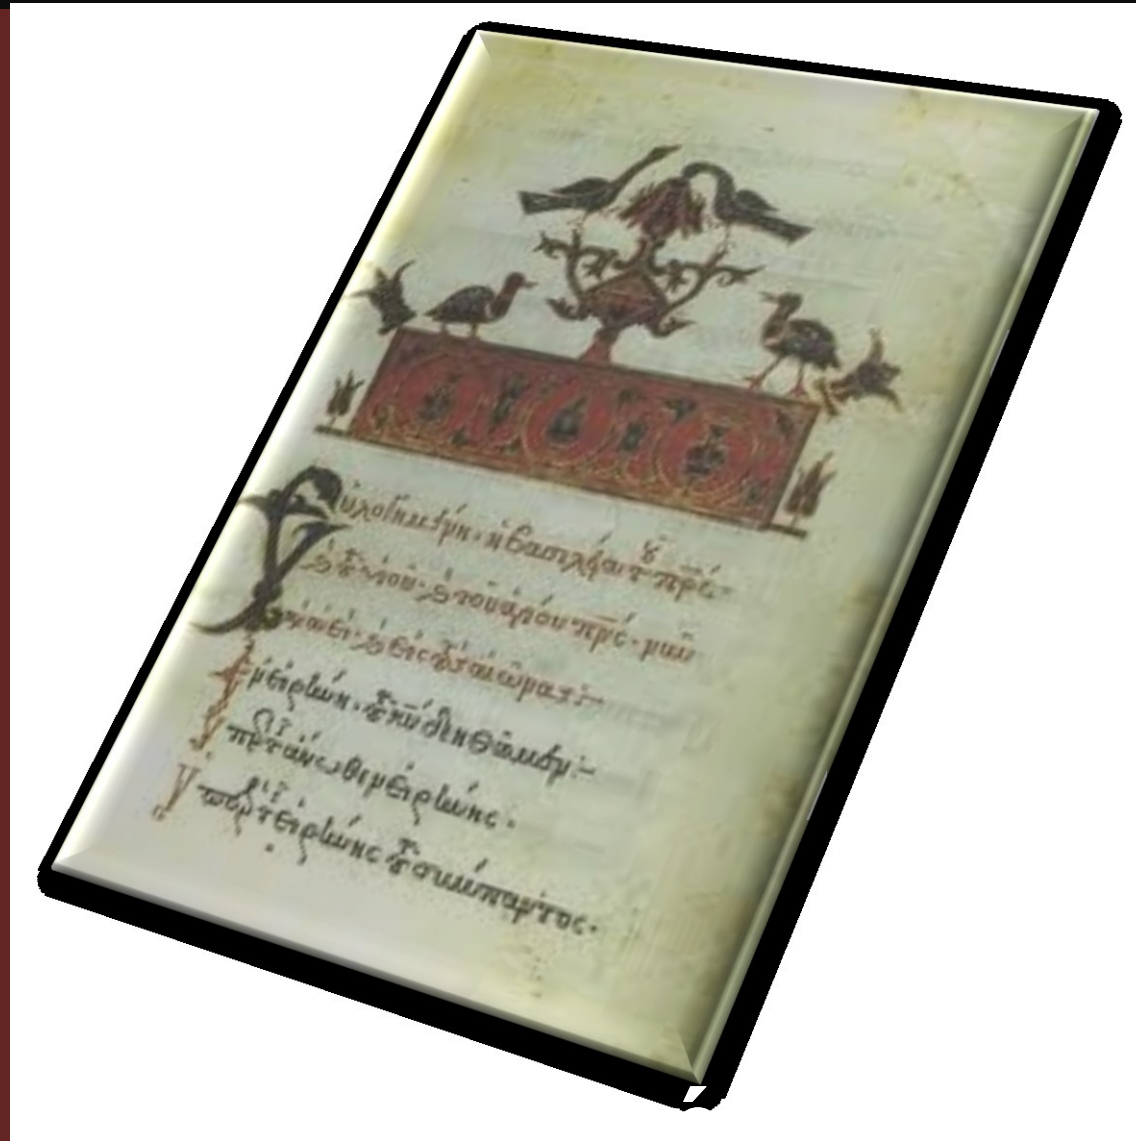 Εὐλογημένη· ἡ βασιλεία τοῦ πρς·
καὶ τοῦ υἱοῦ· καὶ τοῦ ἁγίου πνς· νῦν
καὶ ἀεί· καὶ εἰς τοὺς αἰῶνας
Ἐν εἰρήνη· τοῦ κυ δεηθῶμεν:-
Ὑπὲρ τῆς ἄνωθεν εἰρήνης·
Ὑπὲρ τῆς εἰρήνης τοῦ σύμπαντος·